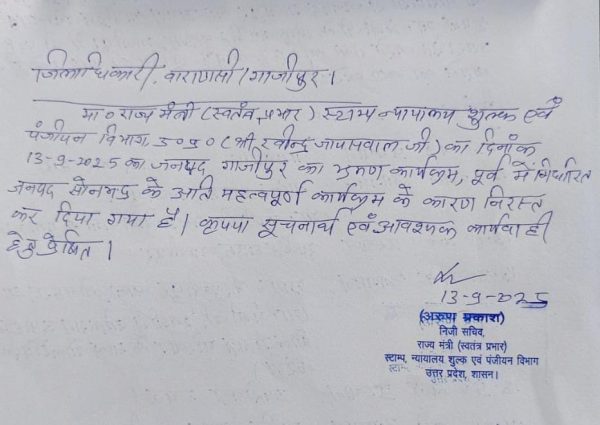 जिलाधिकारी, वाराणसी/गाजीपुर।
मा० राज्य मंत्री (स्वतंत्र प्रभार) स्टाम्प न्यायालय शुल्क एवं
पंजीयन विभाग, उ०प्र० (श्री रवीन्द्र जायसवाल जी) का दिनांक
13-9-2025 का जनपद गाजीपुर का भ्रमण कार्यक्रम, पूर्व में निर्धारित
जनपद सोनभद्र के अति महत्वपूर्ण कार्यक्रम के कारण निरस्त
कर दिया गया है। कृपया सूचनार्थ एवं आवश्यक कार्यवाही
हेतु प्रेषित।
13-9-2025
(अरुण प्रकाश)
निजी सचिव,
राज्य मंत्री (स्वतंत्र प्रभार)
स्टाम्प, न्यायालय शुल्क एवं पंजीयन विभाग
उत्तर प्रदेश, शासन।